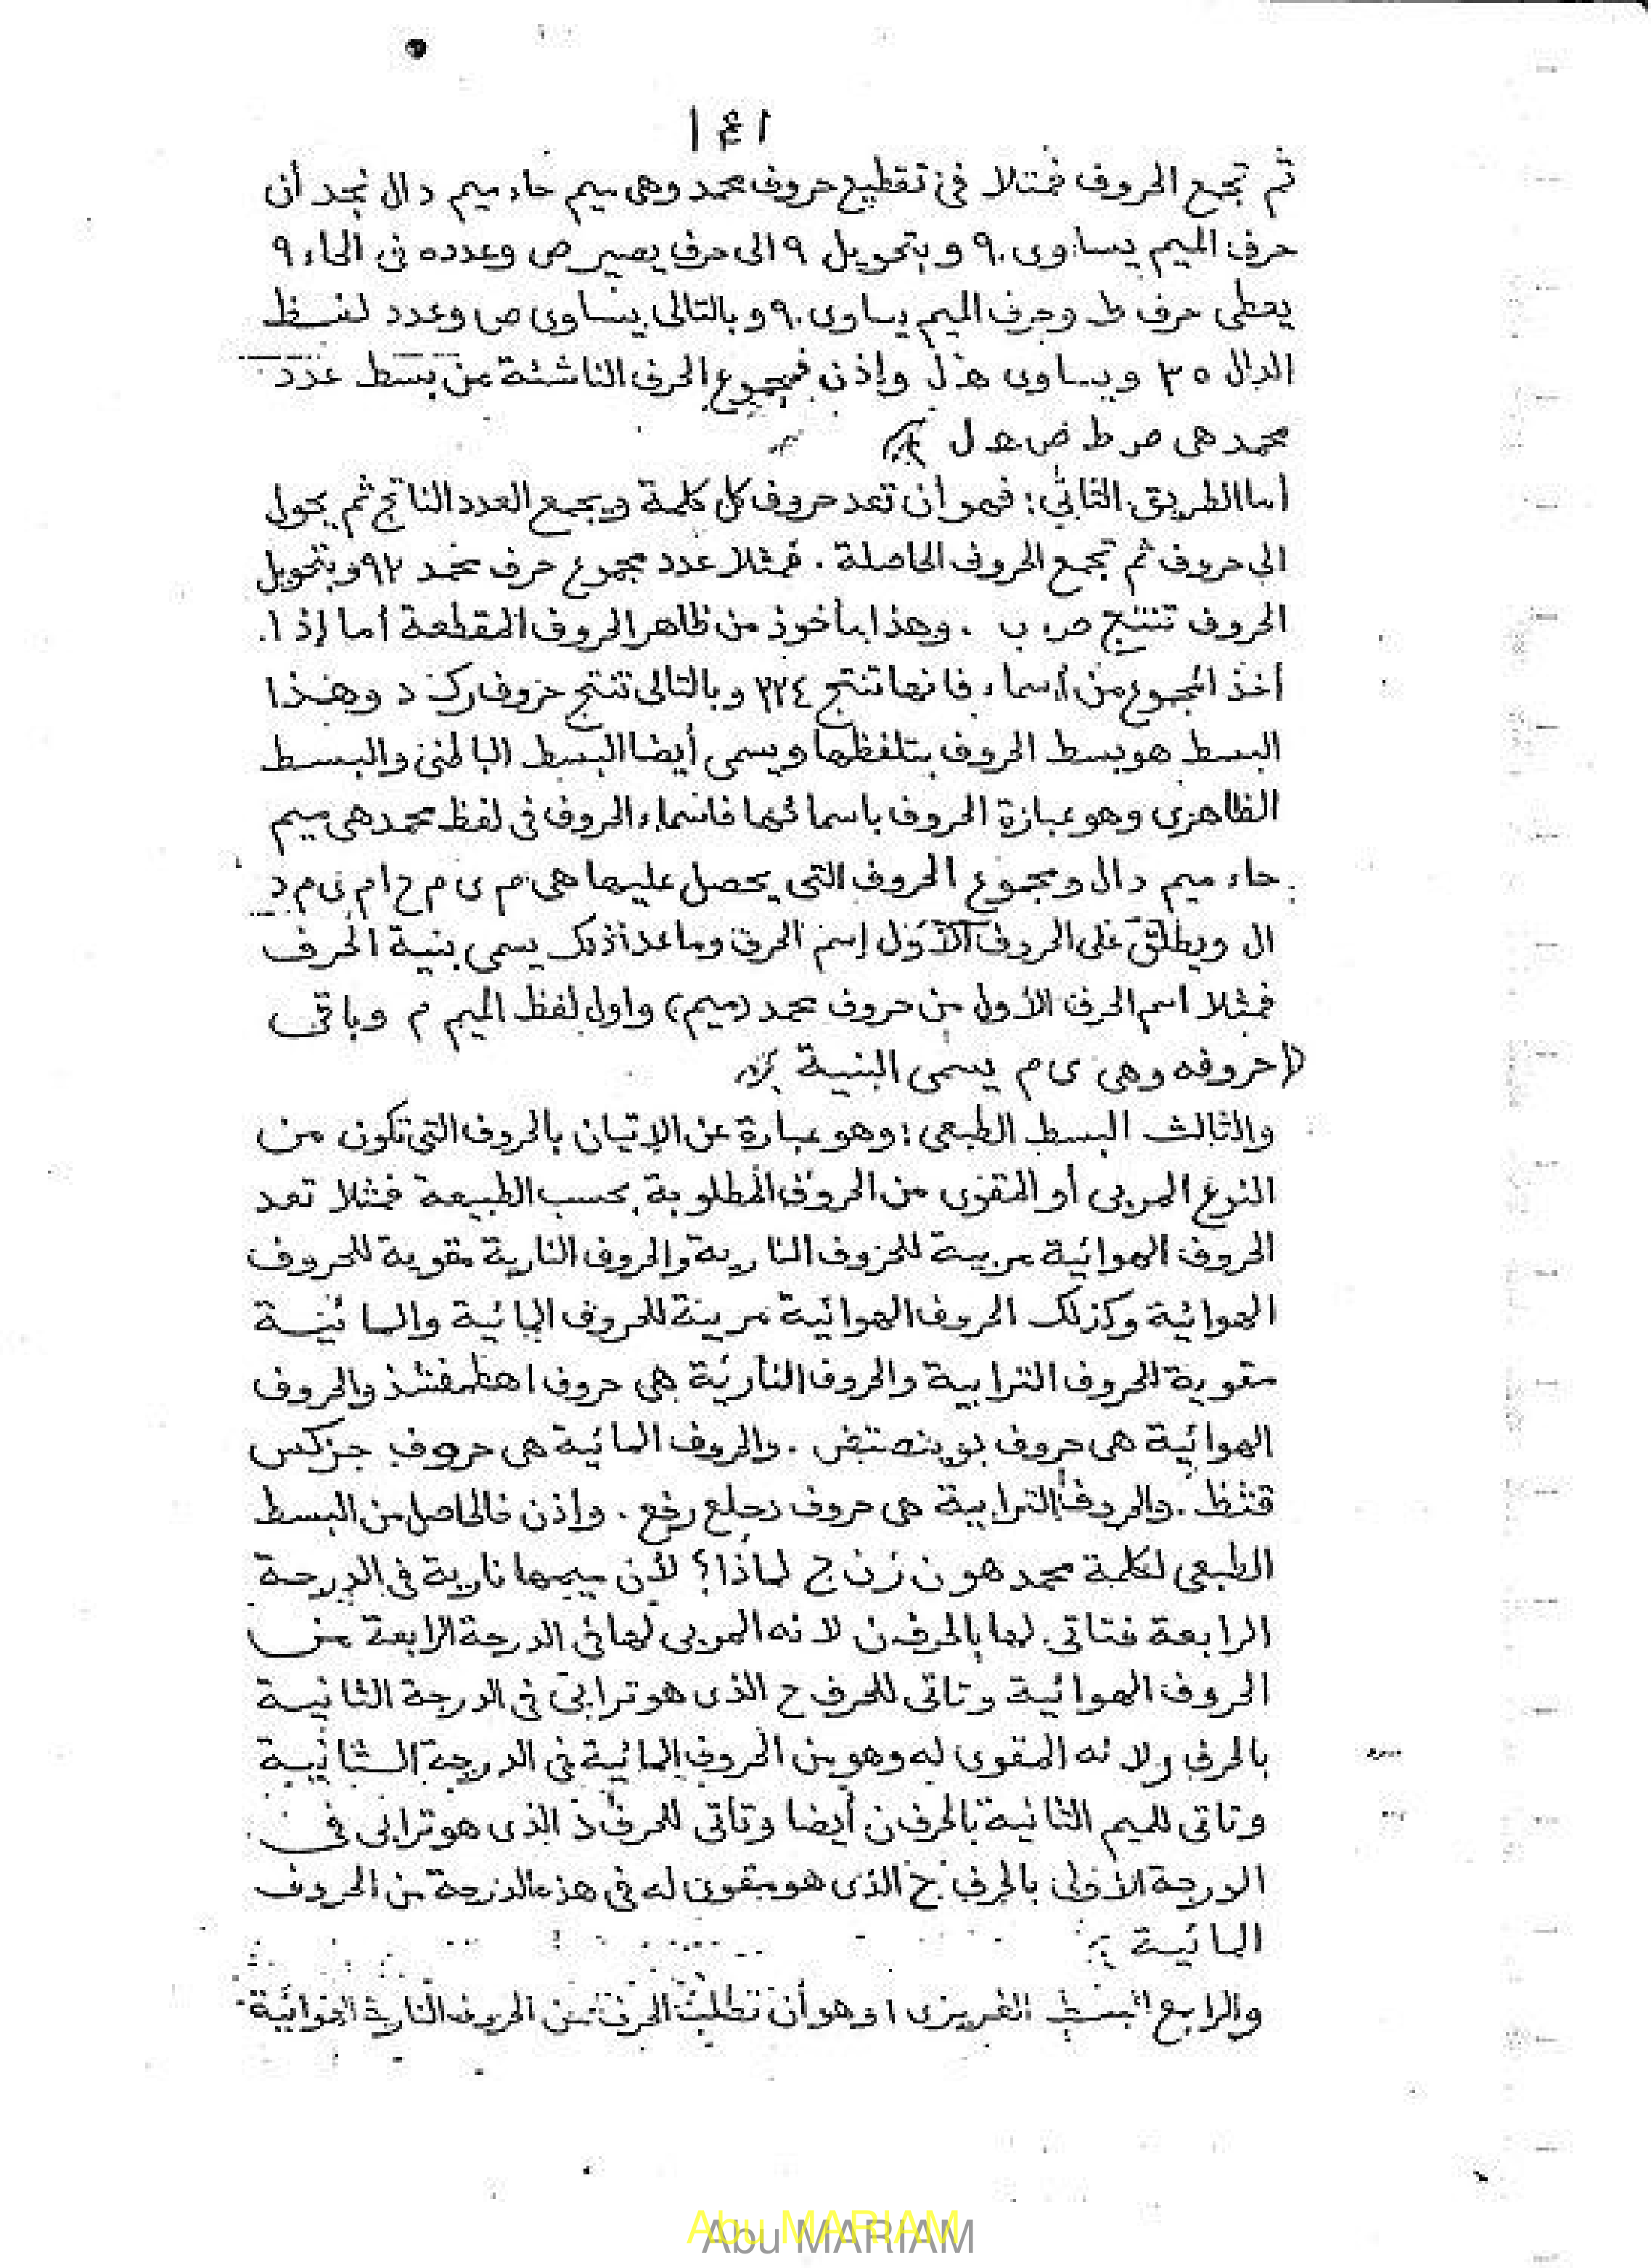 ثم تجمع الحروف فمثلا فى تقطيع حروف محمد وهى ميم حاء ميم دال نجد أن
حرف الميم يساوى ٩٠ وبتحويل ٩٠ الى حرف يصير ص وعدده فى الحاء ٩
يعطى حرف ط وحرف الميم يساوى ٩٠ وبالتالى يساوى ص وعدد لفظ
الدال ٣٥ ويساوى هـ ل وإذن فمجموع الحرف الناشئة من بسط عدد
محمد هى ص ط ص هـ ل
أما الطريق الثانى : فهو أن تعد حروف كل كلمة ويجمع العدد الناتج ثم يحول
الى حروف ثم تجمع الحروف الحاصلة . فمثلا عدد مجموع حرف محمد ٩٢ وبتحويل
الحروف تنتج ص ب . وهذا مأخوذ من ظاهر الحروف المقطعة أما إذا
أخذ المجموع من أسماء فانها تنتج ٢٢٤ وبالتالى تنتج حروف ر ك د وهذا
البسط هو بسط الحروف بتلفظها ويسمى أيضا البسط الباطنى والبسط
الظاهرى وهو عبارة الحروف باسمائها فاسماء الحروف فى لفظ محمد هى ميم
حاء ميم دال ومجموع الحروف التى يحصل عليها هى م ى م ح ا م ى م د
ال ويطلق على الحروف الأول إسم الحرف وما عدا ذلك يسمى بنية الحرف
فمثلا اسم الحرف الأول من حروف محمد (ميم) واول لفظ الميم م وباقى
حروفه وهى ى م يسمى البنية
والثالث البسط الطبعى : وهو عبارة عن الإتيان بالحروف التى تكون من
النوع المربى أو المقوى من الحروف المطلوبة بحسب الطبيعة فمثلا تعد
الحروف الهوائية مربية للحروف النارية والحروف النارية مقوية للحروف
الهوائية وكذلك الحروف الهوائية مربية للحروف المائية والمائية
مقوية للحروف الترابية والحروف النارية هى حروف اهطمفشذ والحروف
الهوائية هى حروف بوينصتض . والحروف المائية هى حروف جزكس
قثظ . والحروف الترابية هى حروف دحلع رخغ . وإذن فالحاصل من البسط
الطبعى لكلمة محمد هو ن ز ن ج لماذا؟ لأن ميمها نارية فى الدرجة
الرابعة فتاتى لها بالحرف ن لانه المربى لها فى الدرجة الرابعة من
الحروف الهوائية وتاتى للحرف ح الذى هو ترابى فى الدرجة الثانية
بالحرف ز لانه المقوى له وهو من الحروف المائية فى الدرجة الثانية
وتاتى للميم الثانية بالحرف ن أيضا وتاتى للحرف د الذى هو ترابى فى
الدرجة الأولى بالحرف ج الذى هو مقوى له فى هذه الدرجة من الحروف
المائية
والرابع البسط الغريزى : وهو أن تطلب الحرف من الحروف النارية الهوائية
Abu MARIAM